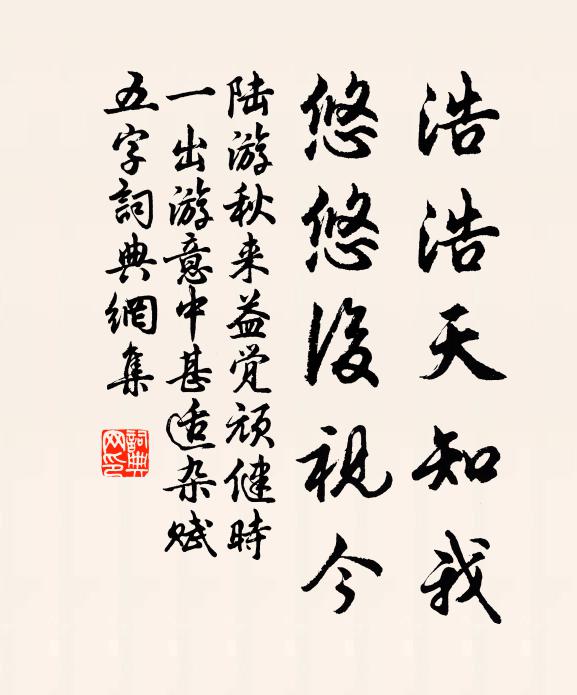 浩浩天知我
悠悠後視今
陆游秋来益觉顽健時
一出游意中甚适杂赋
五字詞典網集
詞典
网印